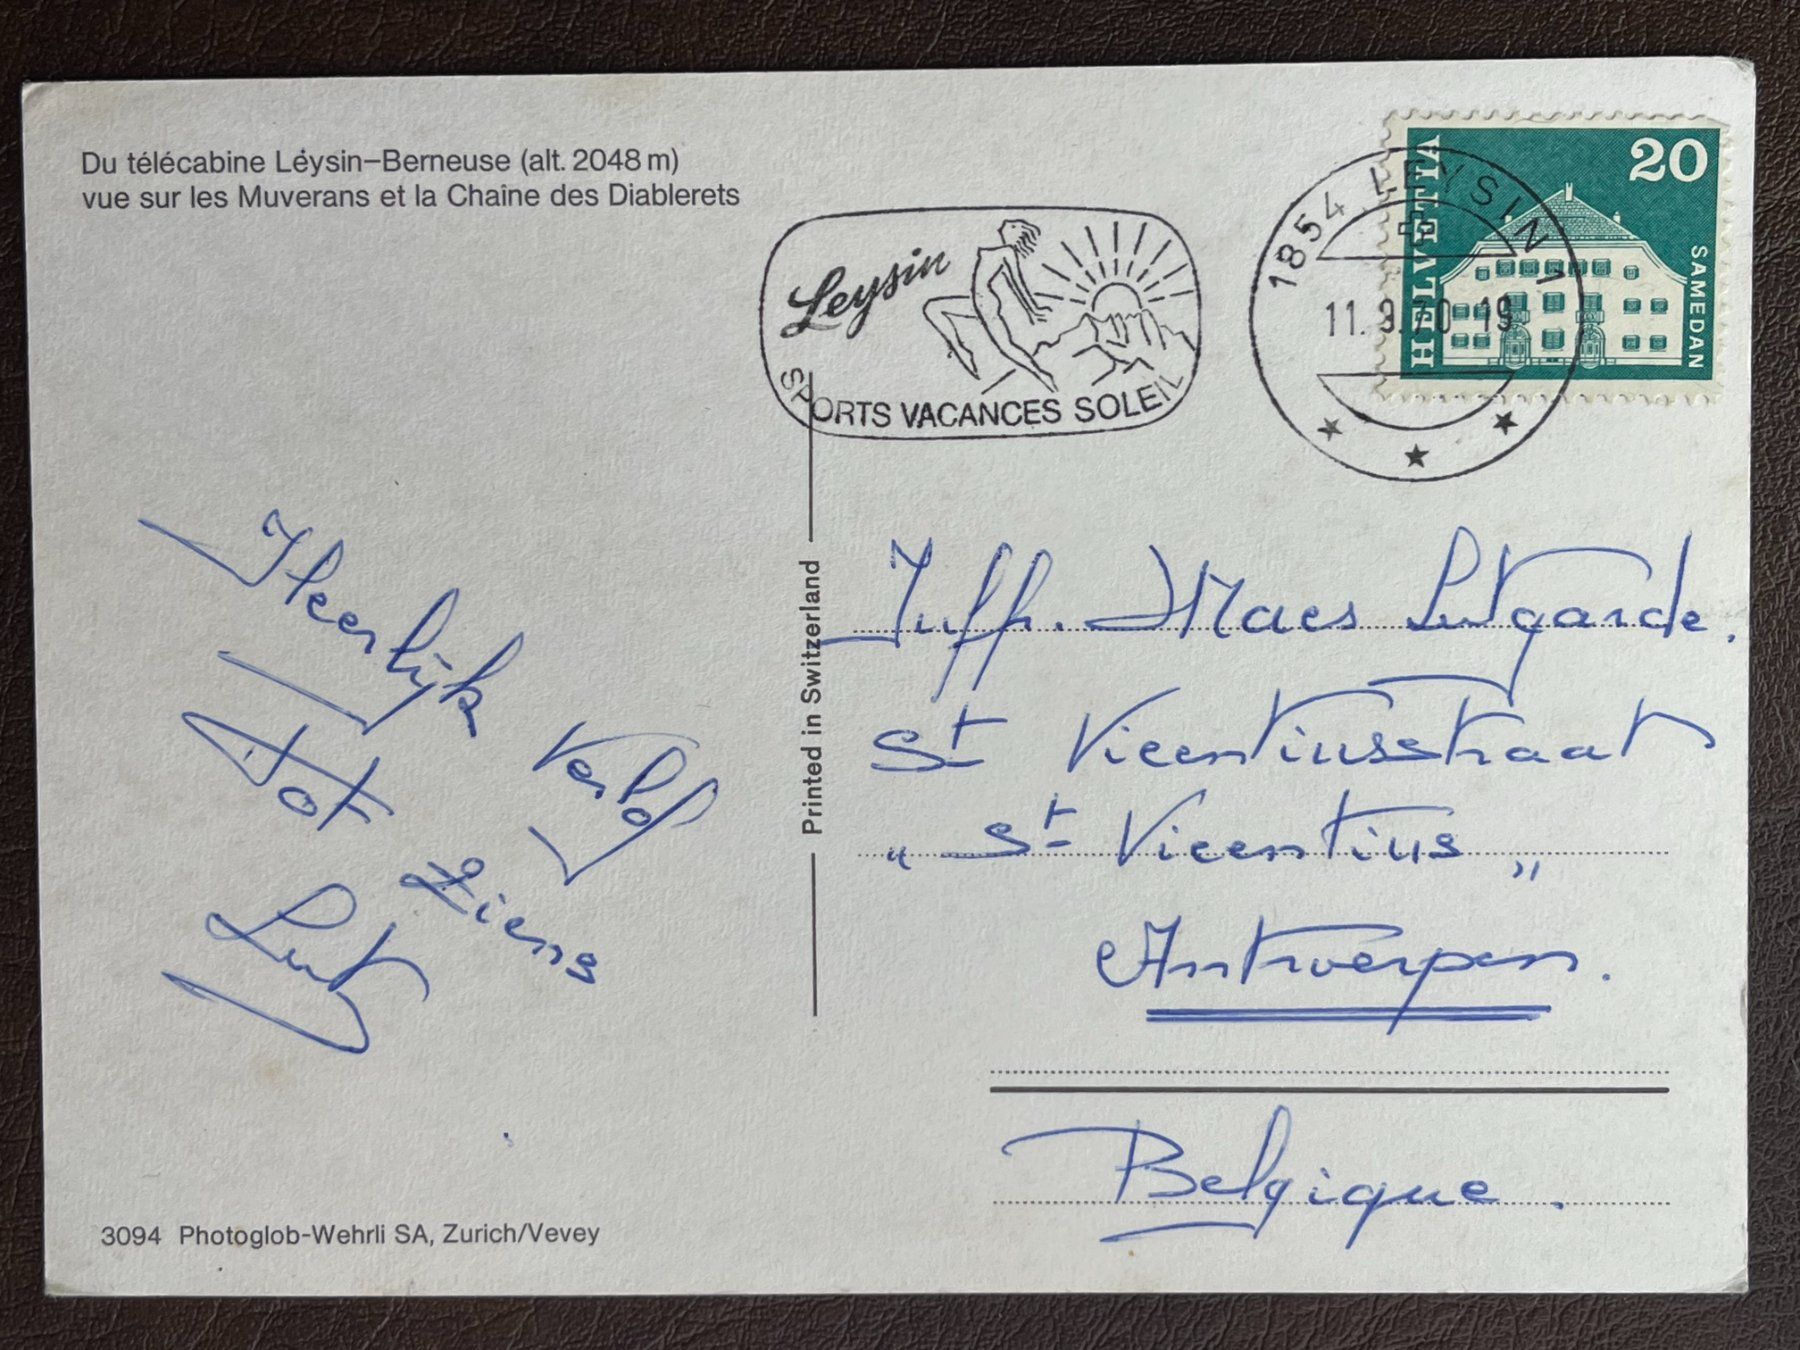 Du télécabine Léysin–Berneuse (alt. 2048 m)
vue sur les Muverans et la Chaîne des Diablerets
Leysin
SPORTS VACANCES SOLEIL
1854 LEYSIN 1
11. 9.70 19
HELVETIA
20
SAMEDAN
Heerlijk Verlof
Tot Ziens
Lut
Printed in Switzerland
Juffr. Maes Lutgarde.
St Vicentiusstraat
„ St Vicentius „
Antwerpen.
Belgique.
3094 Photoglob-Wehrli SA, Zurich/Vevey